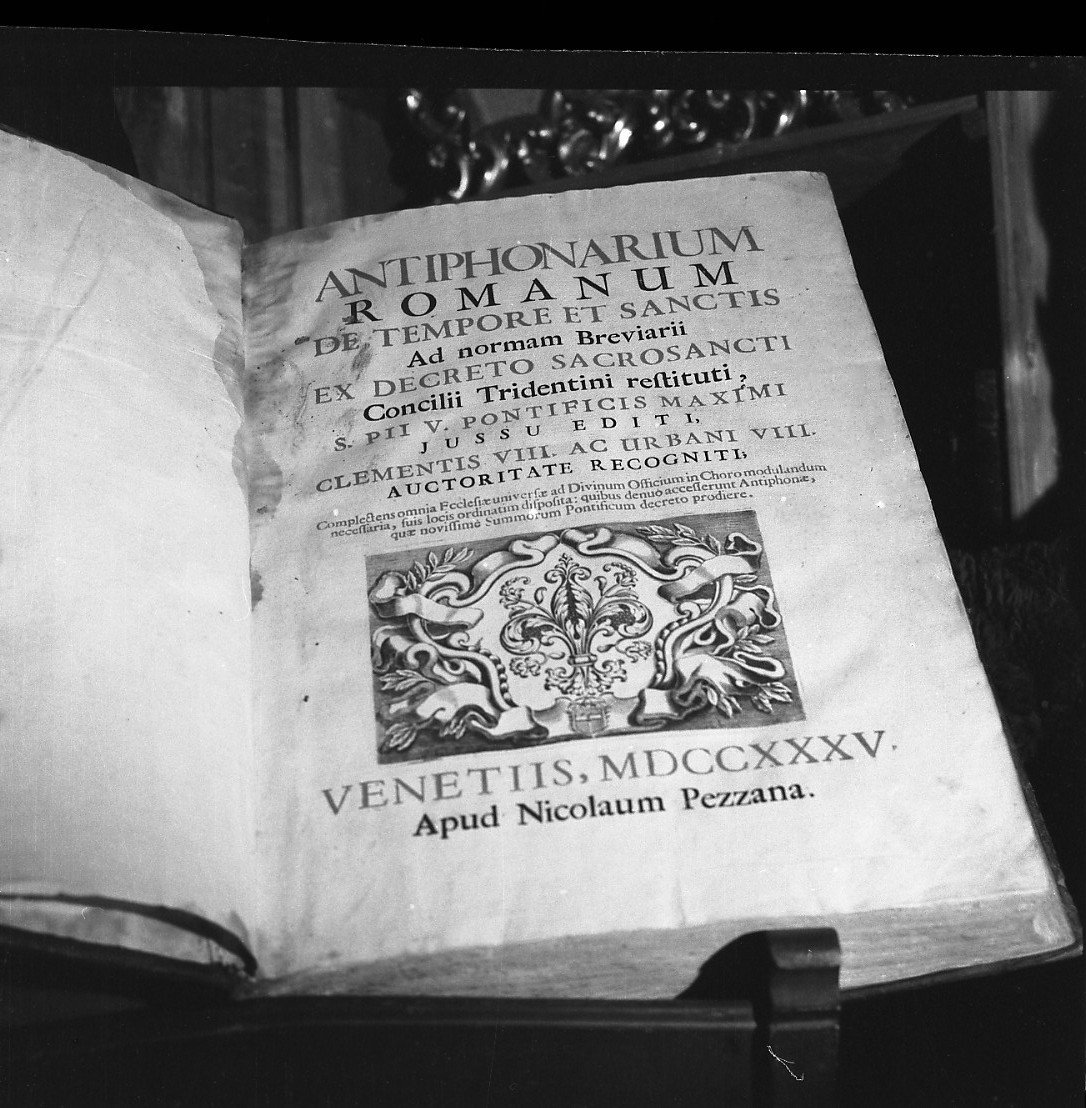 ANTIPHONARIUM
ROMANUM
DE TEMPORE ET SANCTIS
Ad normam Breviarii
EX DECRETO SACROSANCTI
Concilii Tridentini reſtituti,
S. PII V. PONTIFICIS MAXIMI
JUSSU EDITI,
CLEMENTIS VIII. AC URBANI VIII.
AUCTORITATE RECOGNITI,
Complectens omnia Eccleſiæ univerſæ ad Divinum Officium in Choro modulandum
neceſſaria, ſuis locis ordinatim diſpoſita: quibus denuo acceſſerunt Antiphonæ,
quæ noviſſimè Summorum Pontificum decreto prodiere.
VENETIIS, MDCCXXXV.
Apud Nicolaum Pezzana.